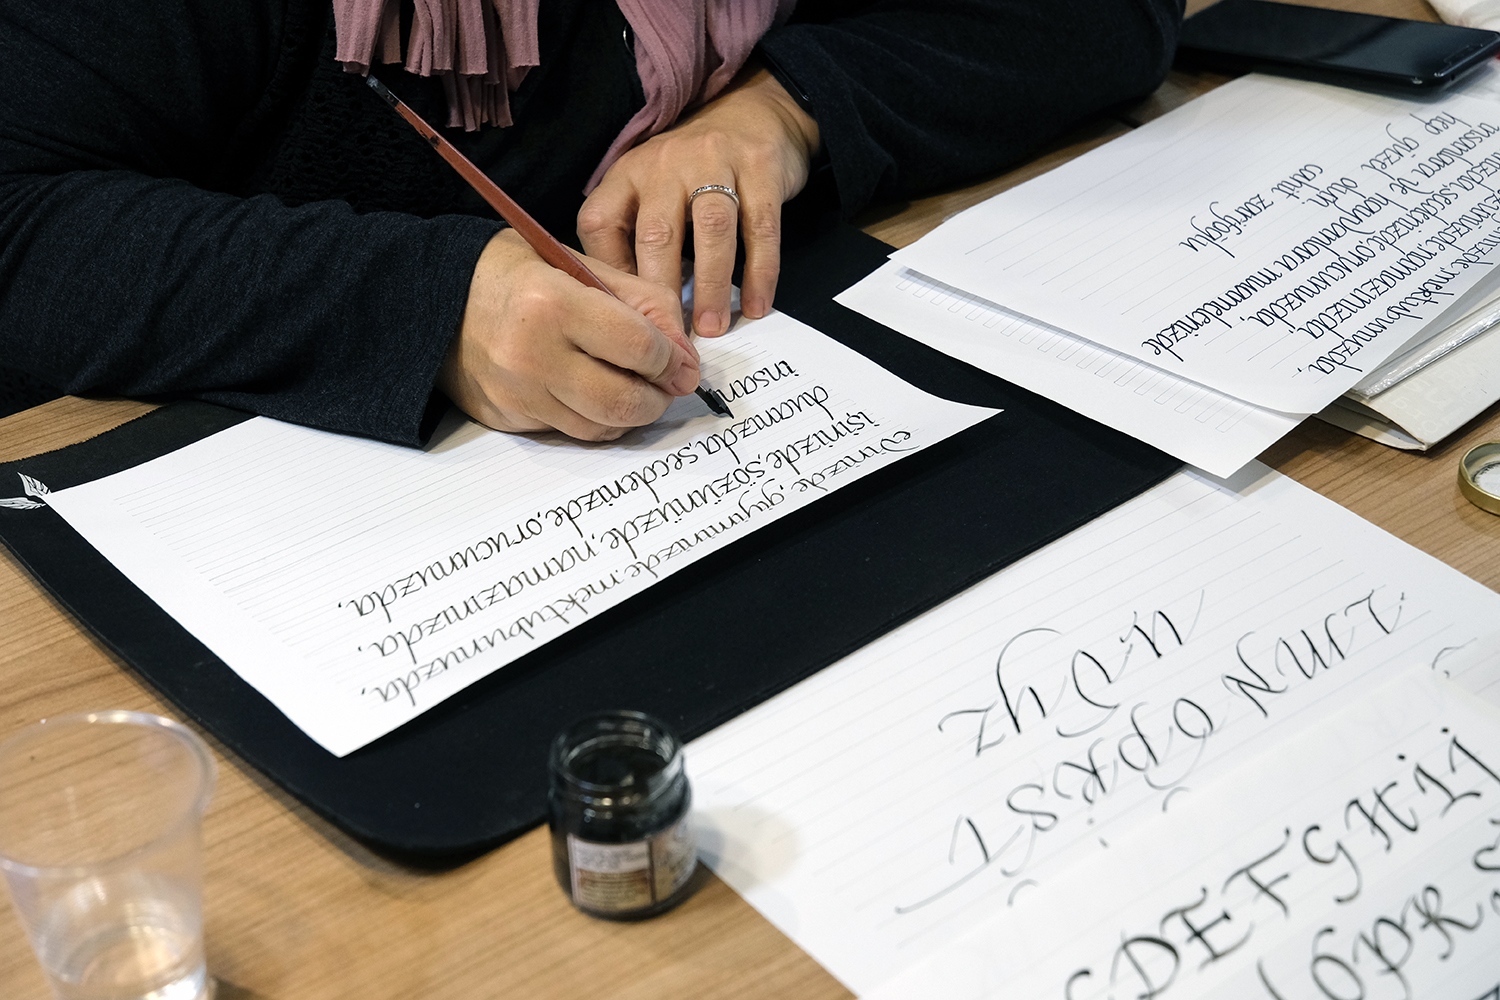 evinizde, giyiminizde, mektubunuzda,
işinizde, sözünüzde, namazınızda,
duanızda, secdenizde, orucunuzda,
insan
mektubunuzda,
namazınızda,
secdenizde, orucunuzda,
insanlara ve hayvanlara muamelenizde
hep güzel olun.
cahit zarifoğlu
L M N
O P R S T
U V Y Z
C D E F G H I J
O P R S